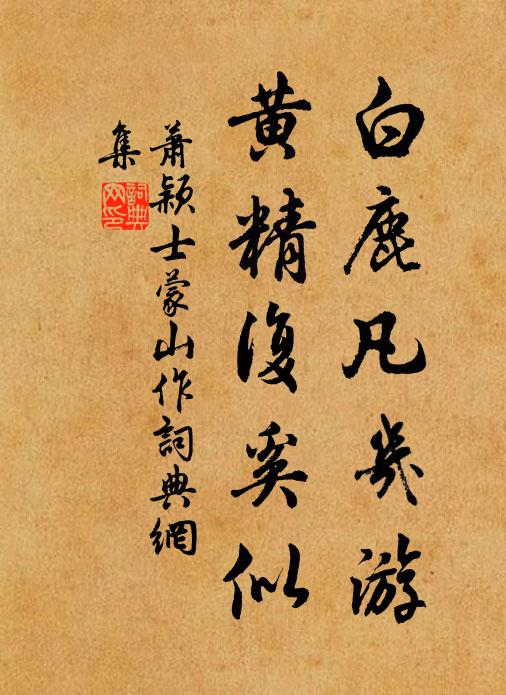 白鹿凡幾游
黄精復奚似
蕭穎士蒙山作詞典網
集
詞典
网印